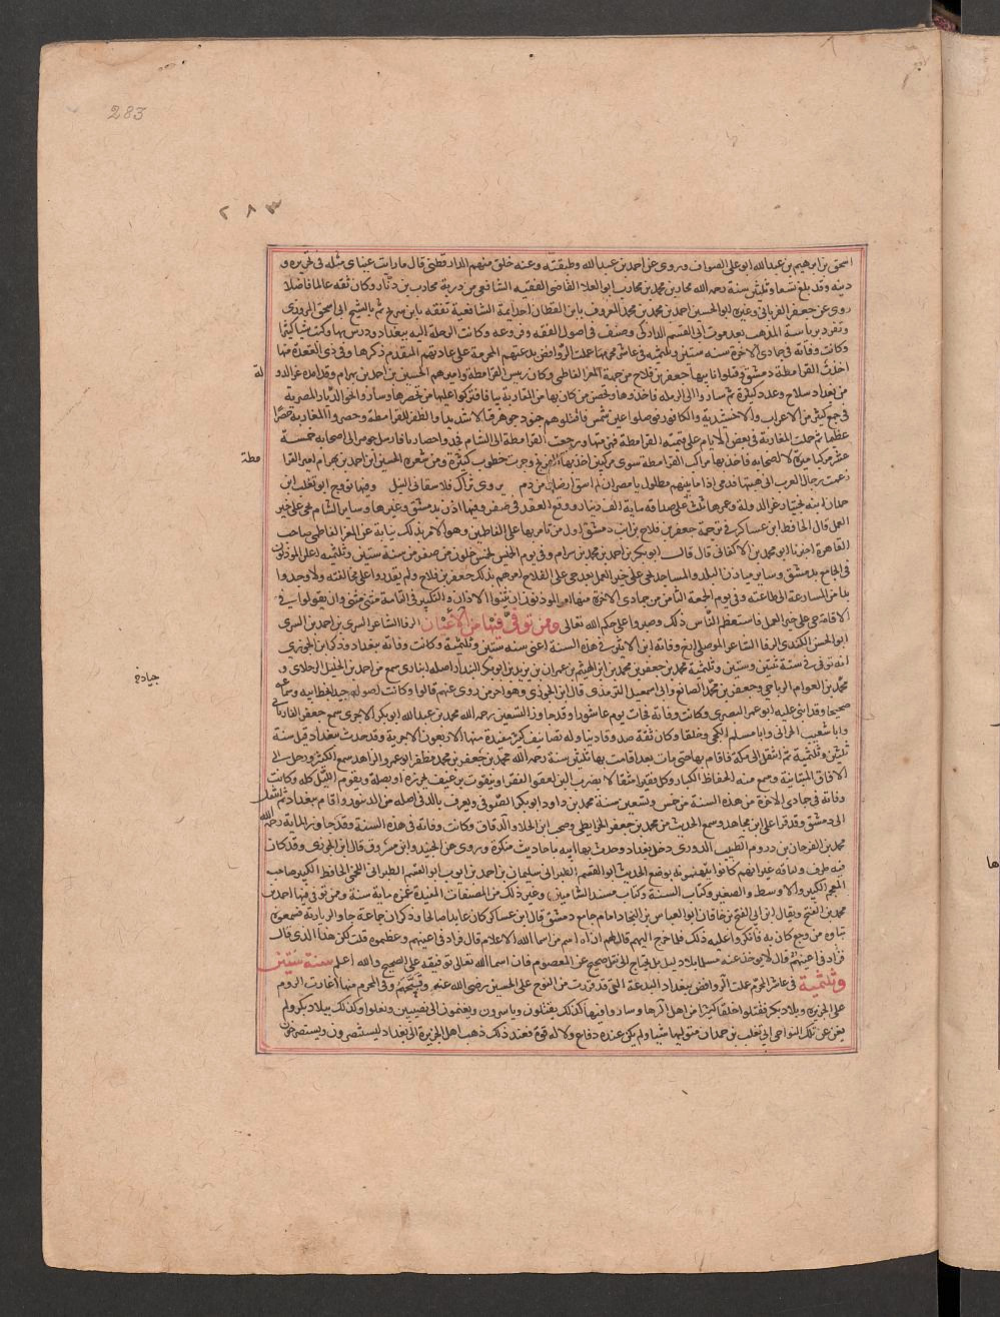 283
٢٨٣
اسحق بن ابرهيم بن عبد الله ابو على الصواف وروى عن احمد بن عبد الله وطبقته وعنه خلق منهم الدارقطنى قال ما رات عيناى مثله فى تحريره و
دينه وقد بلغ تسعا وثمانين سنة رحمه الله محارب بن محمد بن محارب ابو العلا القاضى الفقيه الشافعى من ذرية محارب بن دثار وكان ثقه عالما فاضلا
روى عن جعفر الفريابى وغيره ابو الحسين احمد بن محمد المعروف بابن القطان احد ايمة الشافعية تفقه بابن سريج ثم بالشيخ ابى اسحق المروزى
وتفرد برياسة المذهب بعد موت ابى القسم الداركى وصنف فى اصول الفقه وفروعه وكانت الرحلة اليه ببغداد ودرس بها وكتب شيا كثيرا
وكانت وفاته فى جمادى الاخرة سنه ستين وثلثميه فى عاشر محرمها عملت الروافض بدعتهم المحرمة على عادتهم المتقدم ذكرها وفى ذى القعده منها
اخذت القرامطة دمشق وقتلوا نايبها جعفر بن فلاح من جهة المعز الفاطمى وكان رييس القرامطة واميرهم الحسين بن احمد بن بهرام وقد امده عز الدو
له
من بغداد بسلاح وعدد كثيرة ثم ساروا الى الرمله فاخذوها وتحصن من كان بها من المغاربة بيافا فتركوا عليها من يحصرها وساروا نحو الديار المصرية
فى جمع كثير من الاعراب والاخشيدية والكافوريه فوصلوا عين شمس فاقتتلوا هم وجنود جوهر قتالا شديدا والظفر للقرامطة وحصروا المغاربة حصرا
عظيما ثم حملت المغاربة فى بعض الايام على ميمنة القرامطة فهزمتها ورجعت القرامطة الى الشام فجدوا حصار يافا فارسل جوهر الى اصحابه خمسة
عشر مركبا ميرة لاصحابه فاخذتها مراكب القرامطة سوى مركبين اخذتها الافرنج وجرت خطوب كثيرة ومن شعر الحسين ابن احمد بن بهرام امير القرا
مطة
زعمت رجال العرب انى هبتها فدمى اذا ما بينهم مطلول يا مصر ان لم اسق ارضك من دم يروى ثراك فلا سقانى النيل وفيها تزوج ابو تغلب ابن
حمدان ابنة بختيار عز الدولة وعمرها ثلث على صداق مايه الف دينار ووقع العقد فى صفر وفيها اذن بدمشق وغيرها وساير الشام بحى على خير
العمل قال الحافظ ابن عساكر فى ترجمة جعفر بن فلاح نايب دمشق اول من تامر بها على الفاطميين وهو الامر بذلك نيابة عن المعز الفاطمى صاحب
القاهرة اخبرنا ابو محمد بن الاكفانى قال قال ابو بكر بن احمد بن محمد بن شرام وفى يوم الخميس لخمس خلون من صفر من سنة ستين وثلثميه اعلن الموذنون
فى الجامع بدمشق وساير ميادن البلد والمساجد بحى على خير العمل بعد حى على الفلاح امرهم بذلك جعفر بن فلاح ولم يقدروا على مخالفته ولا وجدوا
بدا من المسارعة الى طاعته وفى يوم الجمعة الثامن من جمادى الاخرة منها امر الموذنون ان يثنوا الاذان والتكبير فى الاقامة مثنى مثنى وان يقولوا فى
الاقامة حى على خير العمل فاستعظم الناس ذلك وصبروا على حكم الله تعالى ومن توفى فيها من الاعيان الرفا الشاعر السرى بن احمد بن السرى
ابو الحسن الكندى الرفا الشاعر الموصلى ارخ وفاته ابن الاثير فى هذه السنة اعنى سنه ستين وثلثمية وكانت وفاته ببغداد وذكر ابن الجوزى
انه توفى فى سنة ثنتين وستين وثلثمية محمد بن جعفر بن محمد بن ابى الهيثم بن عمران بن يزيد ابو بكر البندار اصله انبارى سمع من احمد بن الخليل البرجلانى و
محمد بن العوام الرياحى وجعفر بن محمد الصايغ وابى اسمعيل الترمذى قال ابن الجوزى وهو اخر من روى عنهم قالوا وكانت اصوله جيادا بخط ابيه وسماعه
جيادة
صحيحا وقد انتقى عليه ابو عمر البصرى وكانت وفاته فجاة يوم عاشورا وقد جاوز التسعين رحمه الله محمد بن عبد الله ابو بكر الاجرى سمع جعفر الفريابى
وابا شعيب الحرانى وابا مسلم الكجى وخلقا وكان ثقة صدوقا دينا وله تصانيف كثيرة مفيدة منها الاربعون الاجرية وقد حدث ببغداد قبل سنة
ثلثين وثلثمية ثم انتقل الى مكة فاقام بها حتى مات بعد اقامته بها ثلثين سنة رحمه الله محمد بن جعفر بن محمد بن مطر ابو عمرو الزاهد سمع الكثير ورحل الى
الافاق المتباينة وسمع منه الحفاظ الكبار وكان فقيرا متقللا يضرب اللبن لقبور الفقرا ويتقوت برغيف وجزره او بصلة ويقوم الليل كله وكانت
وفاته فى جمادى الاخرة من هذه السنة عن خمس وتسعين سنة محمد بن داود ابو بكر الصوفى ويعرف بالدقى اصله من الدينور واقام ببغداد ثم انتقل
الى دمشق وقد قرا على ابن مجاهد وسمع الحديث من محمد بن جعفر الخرايطى وصحب ابن الجلاء والدقاق وكانت وفاته فى هذه السنة وقد جاوز المايه رحمه الله
محمد بن الفرحان بن دروم الطبيب الدورى دخل بغداد وحدث بها عن ابيه باحاديث منكرة وروى عن الجنيد وابن مسروق قال ابن الجوزى وقد كان
فيه ظرف ولباقة غير انهم كانوا يتهمونه بوضع الحديث ابو القسم الطبرانى سليمان بن احمد بن ايوب ابو القسم الطبرانى اللخمى الحافظ الكبير صاحب
المعجم الكبير والاوسط والصغير وكتاب السنة وكتاب مسند الشاميين وغير ذلك من المصنفات المفيدة عمر ماية سنة وممن توفى فيها احمد بن
محمد بن الفتح ويقال ابن ابى الفتح بن خاقان ابو العباس بن النجاد امام جامع دمشق قال ابن عساكر كان عابدا صالحا وذكر ان جماعة جاوا لزيارته فسمعوه
يتاوه من وجع كان به فانكروا عليه ذلك فلما خرج اليهم قال لهم ان اه اسم من اسما الله الاعلام قال فزاد فى اعينهم وعظموه قلت لكن هذا الذى قال
فزاد فى اعينهم قال لا يوخذ عنه مسلما بلا دليل بل يحتاج الى نقل صحيح عن المعصوم فان اسما الله تعالى توقيفه على الصحيح والله اعلم سنة ستين
وثلثمية فى عاشر المحرم عملت الروافض ببغداد البدعة التى قد قررت من النوح على الحسين رضى الله عنه وقبحهم وفى المحرم منها اغارت الروم
على الجزيرة وديار بكر فقتلوا خلقا كثيرا من اهل الرها وساروا فيها كذلك يقتلون وياسرون ويغنمون الى نصيبين وفعلوا كذلك ببلاد بكر ولم
يغن عن تلك النواحى ابى تغلب بن حمدان متوليها شيا ولم يكن عنده دفاع ولا له قوة فعند ذلك ذهب اهل الجزيرة الى بغداد ليستنصرون ويستصرخون
ها